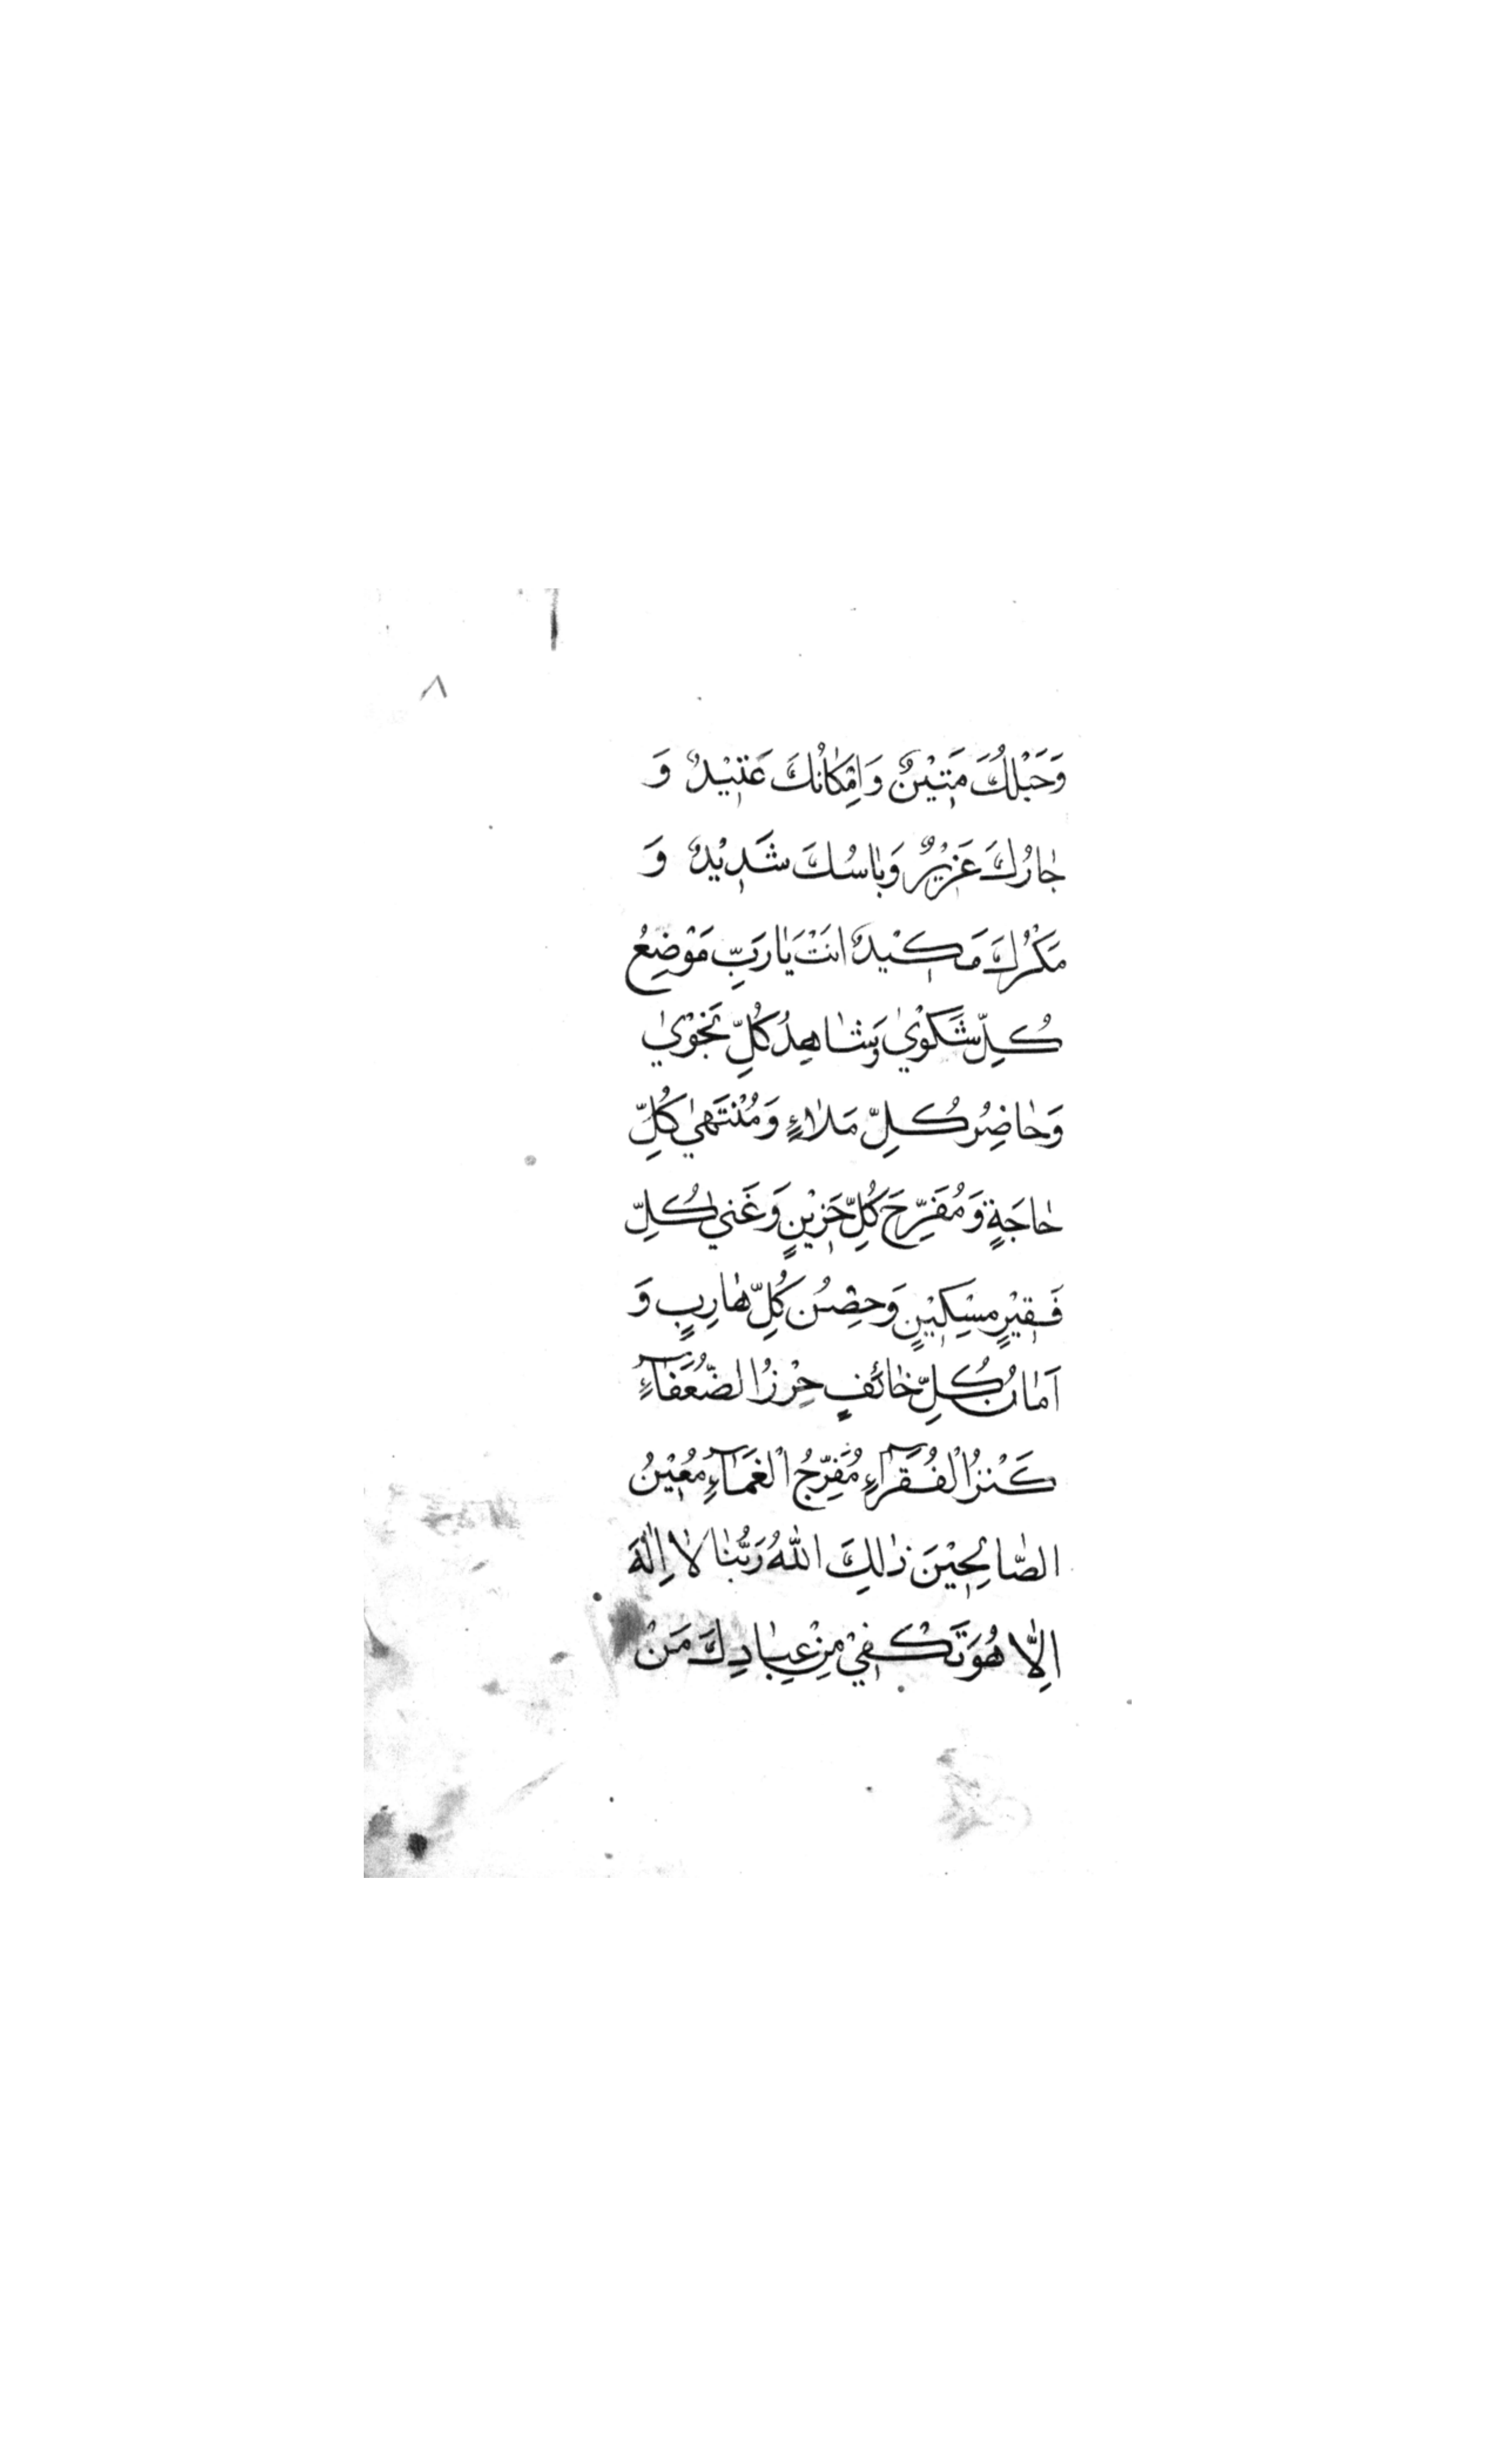 ٨
وَحَبْلُكَ مَتِيْنٌ وَاِمْكَانُكَ عَتِيْدٌ وَ
جَارُكَ عَزِيْزٌ وَبَاسُكَ شَدِيْدٌ وَ
مَكْرُكَ مَكِيْدٌ اَنْتَ يَا رَبِّ مَوْضِعُ
كُلِّ شَكْوٰي وَشَاهِدُ كُلِّ نَجْوٰي
وَحَاضِرُ كُلِّ مَلَاءٍ وَمُنْتَهٰي كُلِّ
حَاجَةٍ وَمُفَرِّحَ كُلِّ حَزِيْنٍ وَغَنِيُّ كُلِّ
فَقِيْرٍ مِسْكِيْنٍ وَحِصْنُ كُلِّ هَارِبٍ وَ
اَمَانُ كُلِّ خَائِفٍ حِرْزُ الضُّعَفَآءِ
كَنْزُ الْفُقَرَآءِ مُفَرِّجُ الْغَمَّآءِ مُعِيْنُ
الصَّالِحِيْنَ ذٰلِكَ اللّٰهُ رَبُّنَا لَا اِلٰهَ
اِلَّا هُوَ تَكْفِيْ مِنْ عِبَادِكَ مَنْ